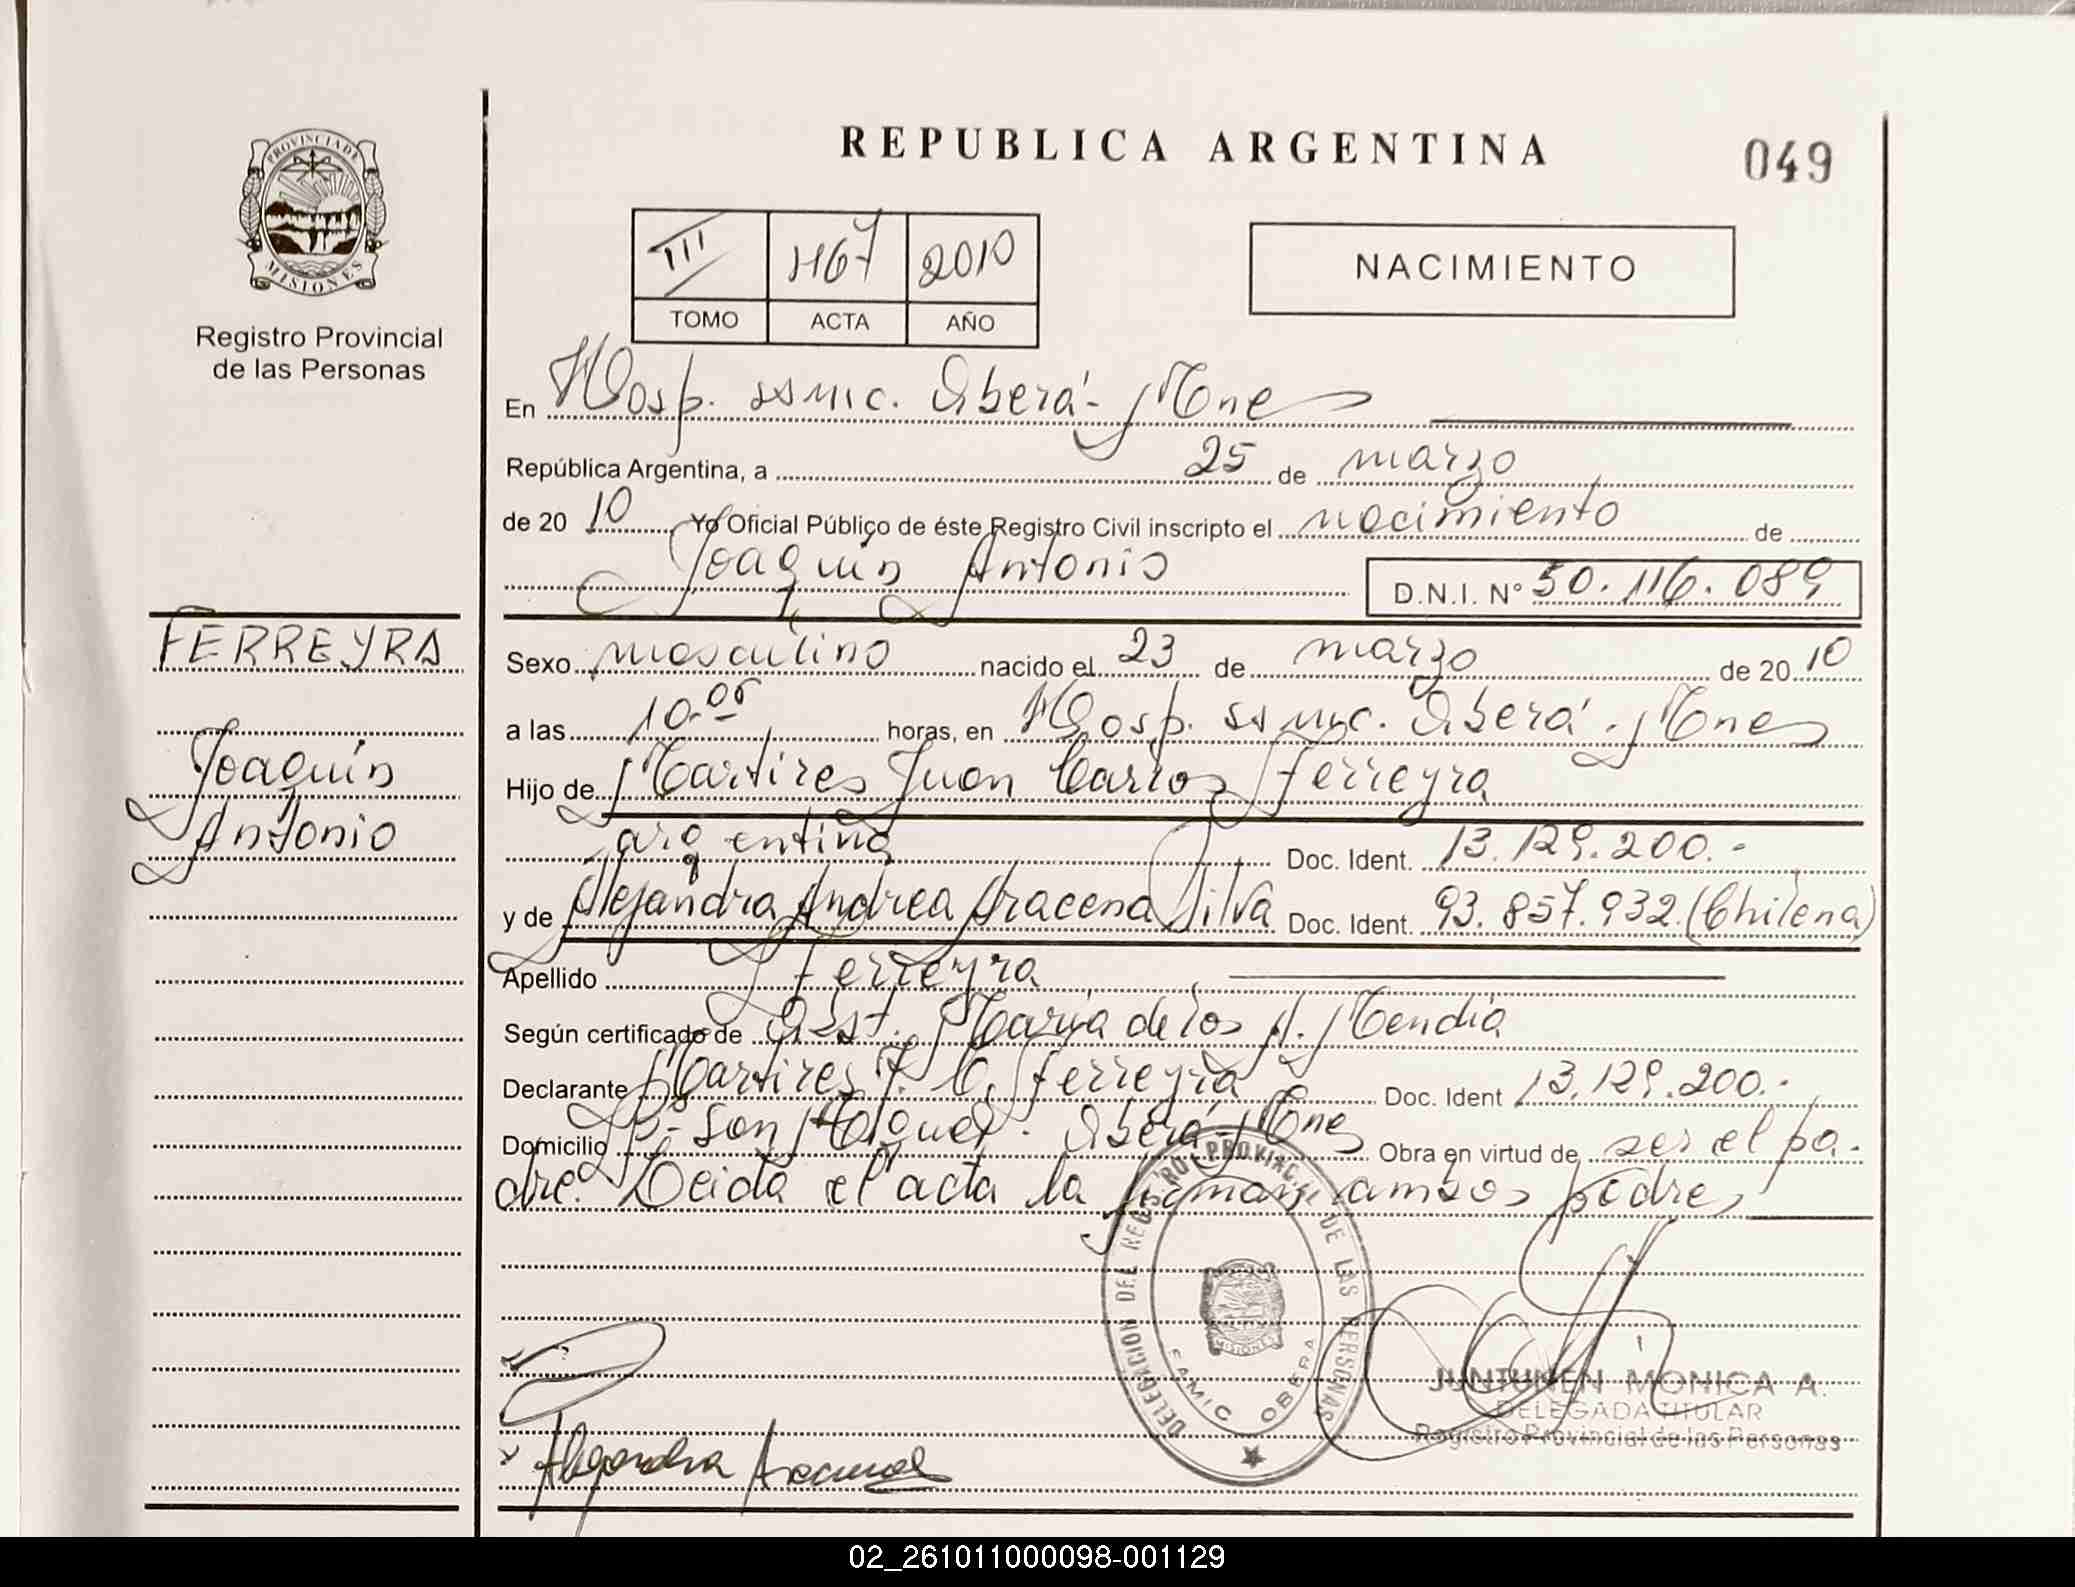 REPUBLICA ARGENTINA
049
PROVINCIA DE
MISIONES
Registro Provincial
de las Personas
III 1167 2010
TOMO ACTA AÑO
NACIMIENTO
En Hosp. ssmic. Oberá - Mnes
República Argentina, a 25 de marzo
de 20 10 Yo Oficial Público de éste Registro Civil inscripto el nacimiento de
Joaquín Antonio D.N.I. Nº 50.116.089
FERREYRA
Joaquín
Antonio
Sexo masculino nacido el 23 de marzo de 20 10
a las 10.05 horas, en Hosp. ssmic. Oberá - Mnes
Hijo de Martires Juan Carlos Ferreyra
argentina Doc. Ident. 13.129.200.-
y de Alejandra Andrea Aracena Silva Doc. Ident. 93.857.932. (Chilena)
Apellido Ferreyra
Según certificado de Obst. María de los A. Mendia
Declarante Martires J. C. Ferreyra Doc. Ident 13.129.200.-
Domicilio Bº San Miguel. Oberá - Mnes Obra en virtud de ser el pa-
dre. Leida el acta la firman ambos padres
DELEGACION DEL REGISTRO PROVINCIAL DE LAS PERSONAS
MISIONES
SAMIC OBERA
JUNTUNEN MONICA A.
DELEGADA TITULAR
Registro Provincial de las Personas
Alejandra Aracena
02_261011000098-001129